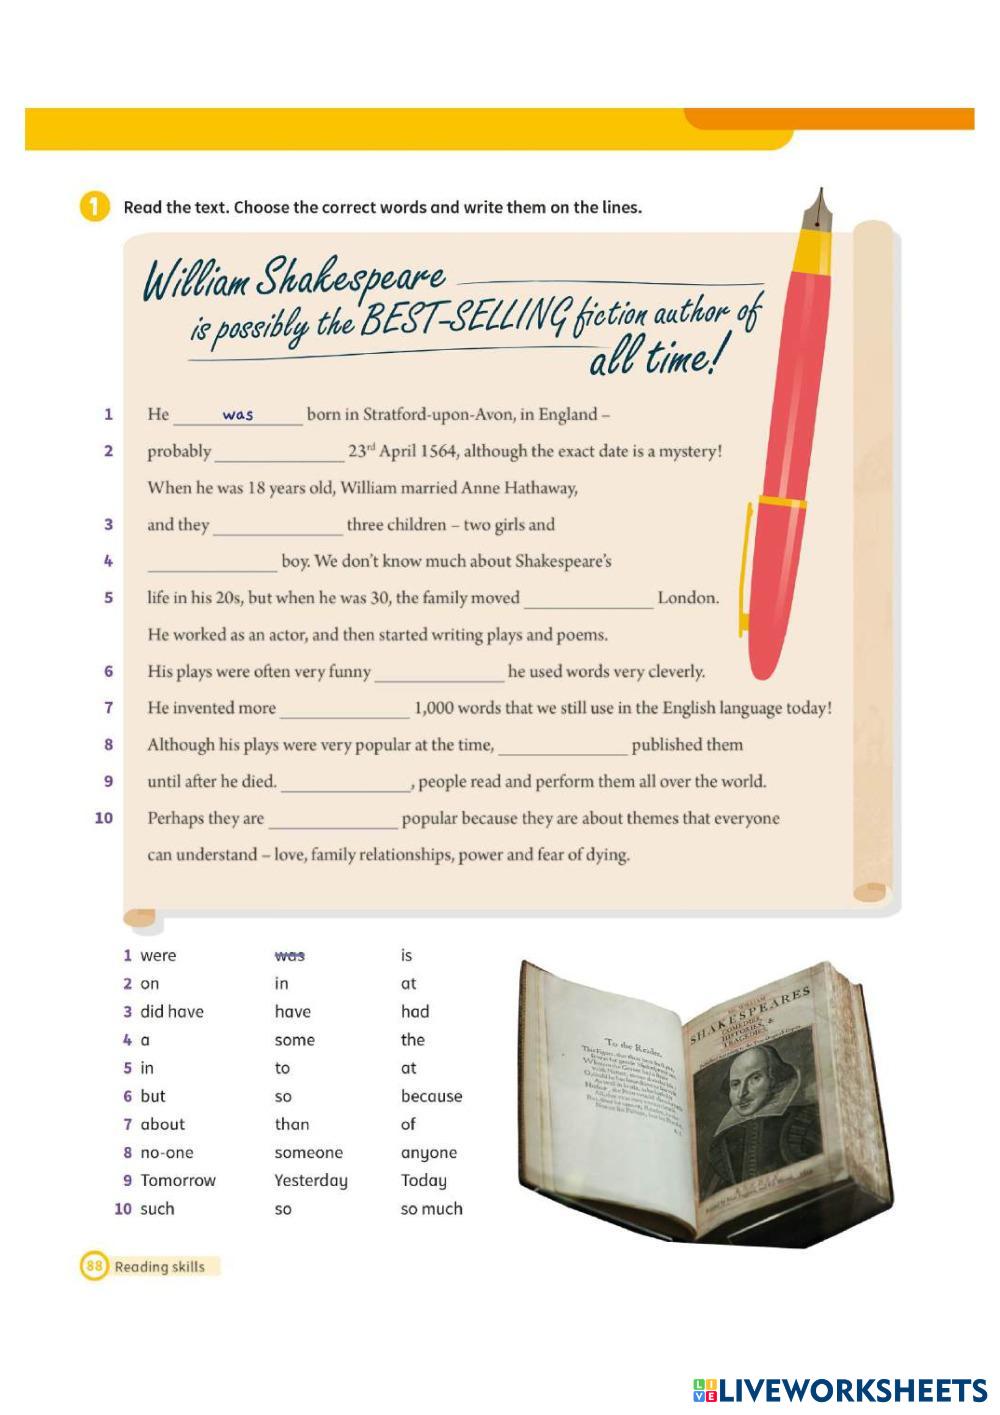 1 Read the text. Choose the correct words and write them on the lines.
William Shakespeare
is possibly the BEST-SELLING fiction author of
all time!
1 He was born in Stratford-upon-Avon, in England –
2 probably ____________ 23rd April 1564, although the exact date is a mystery!
When he was 18 years old, William married Anne Hathaway,
3 and they ____________ three children – two girls and
4 ____________ boy. We don't know much about Shakespeare's
5 life in his 20s, but when he was 30, the family moved ____________ London.
He worked as an actor, and then started writing plays and poems.
6 His plays were often very funny ____________ he used words very cleverly.
7 He invented more ____________ 1,000 words that we still use in the English language today!
8 Although his plays were very popular at the time, ____________ published them
9 until after he died. ____________, people read and perform them all over the world.
10 Perhaps they are ____________ popular because they are about themes that everyone
can understand – love, family relationships, power and fear of dying.
1 were was is
2 on in at
3 did have have had
4 a some the
5 in to at
6 but so because
7 about than of
8 no-one someone anyone
9 Tomorrow Yesterday Today
10 such so so much
To the Reader.
SHAKESPEARES
COMEDIES,
HISTORIES, &
TRAGEDIES.
88 Reading skills
LIVE LIVEWORKSHEETS